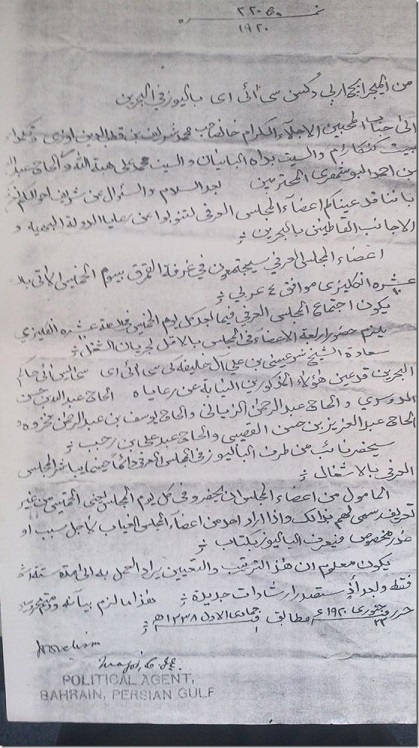 نمـ ٢٢٠
١٩٢٠
من الميجر ايچ ار پي دكسن سي ائي اي باليوز في البحرين
الى جناب المحبين الاجلاء الكرام خانصاحب محمد شريف بن قطب الدين اوزي
بيت والسيت والسيد محمد علي هبة الله والحاج
بن احمد المحترمين بعد السلام والسؤال عن شريف احوالكم
باننا قد عيناكم اعضاء المجلس العرفي لتنوبوا عن رعايا الدولة البهية و
الاجانب القاطنين بالبحرين
اعضاء المجلس العرفي سيجتمعون في غرفة يوم الخميس الاتي
عشره انكليزي موافق ٤ عربي
يكون اجتماع المجلس العرفي فيما بعد كل يوم الخميس عشره انكليزي
يلزم حضور اربعة الاعضاء في المجلس بالاقل لجريان الشغل
سعادة الشيخ سر عيسى بن علي آل خليفة كي سي ائي اي سي اس ائي حاكم
البحرين قد عين هؤلاء المذكورين النيابة عن رعاياه الحاج عبد
الدوسري والحاج عبد الرحمن الزياني والحاج يوسف بن عبد الرحمن فخرو و
الحاج عبد العزيز بن حسن القصيبي والحاج عبد علي بن رجب
سيحضر نائب من طرف الباليوز في المجلس العرفي دائما حينما يباشر المجلس
العرفي بالاشغال
المامول من اعضاء المجلس ان يحضروا في كل يوم المجلس يعني الخميس من غير
تعريف رسمي لهم بذلك واذا اراد احد من اعضاء المجلس الغياب لاجل سبب او
عذر مخصوص فليعرف الباليوز بكتاب
يكون معلوم ان هذا الترتيب والتعيين يراد العمل به الى مدة ستة
فقط وبعد ستصدر ارشادات جديدة هذا ما لزم بيانه ودمتم
حرر في ٢٣ جنوري ١٩٢٠ع مطابق ١ جمادي الاول ١٣٣٨هـ
Major
POLITICAL AGENT,
BAHRAIN, PERSIAN GULF